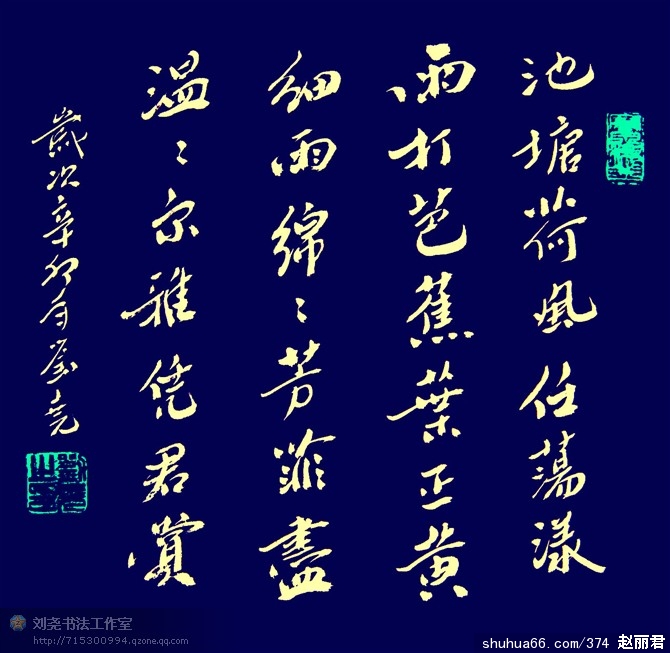 池塘荷風任蕩漾
雨打芭蕉葉正黄
細雨綿〻芳菲盡
溫〻尔雅凭君賞
歲次辛卯年劉堯
刘尧书法工作室
http://715300994.qzone.qq.com
shuhua66.com/374 赵丽君